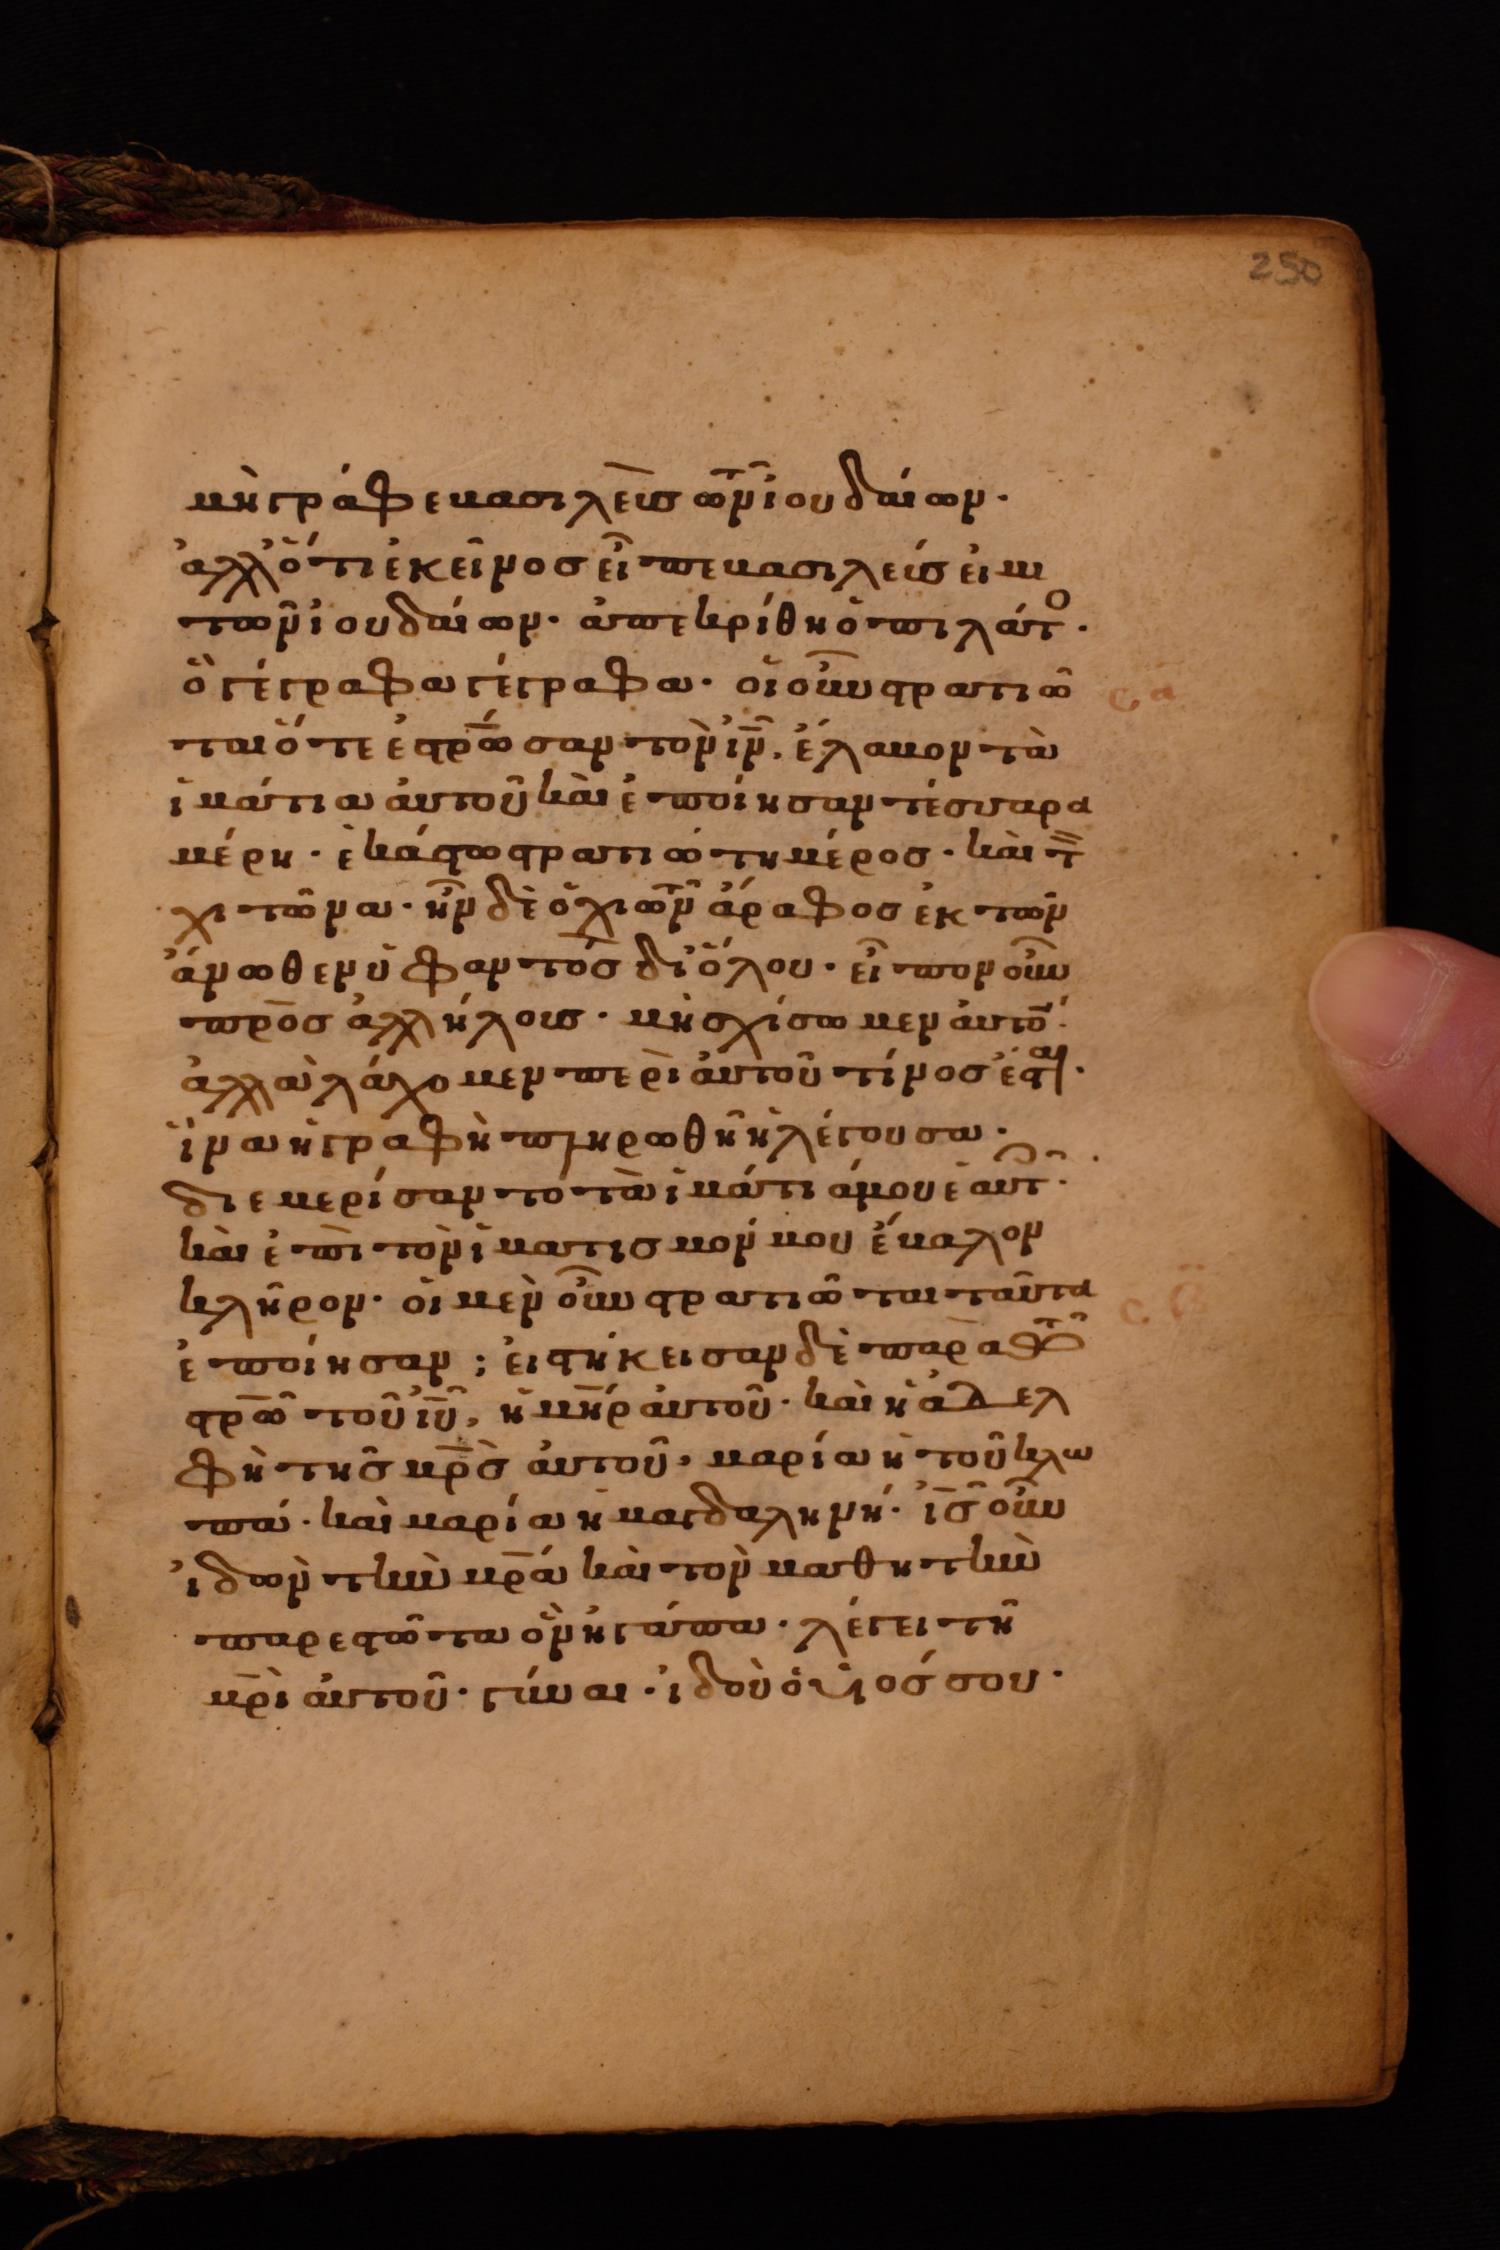 250
μὴ γράφε βασιλεὺς τῶν ἰουδαίων·
ἀλλ' ὅτι ἐκεῖνος εἶπε βασιλεύς εἰμι
τῶν ἰουδαίων· ἀπεκρίθη ὁ πιλάτος·
ὃ γέγραφα γέγραφα· οἱ οὖν στρατιῶ
ται ὅτε ἐστρωσαν τὸν ιν, ἔλαβον τὰ
ἱμάτια αὐτοῦ καὶ ἐποίησαν τέσσαρα
μέρη· ἑκάστω στρατιώτη μέρος· καὶ τ
χιτῶνα· ἦν δὲ ὁ χιτῶν ἄραφος ἐκ τῶν
ἄνωθεν ὑφαντὸς δι' ὅλου· εἶπον οὖν
πρὸς ἀλλήλους· μὴ σχίσωμεν αὐτόν·
ἀλλὰ λάχομεν περὶ αὐτοῦ τίνος ἔσται·
ἵνα ἡ γραφὴ πληρωθῆ ἡ λέγουσα·
διεμερίσαντο τὰ ἱμάτιά μου ἑαυτοῖς·
καὶ ἐπὶ τὸν ἱματισμόν μου ἔβαλον
κλῆρον· οἱ μὲν οὖν στρατιῶται ταῦτα
ἐποίησαν; εἱστήκεισαν δὲ παρὰ τῶ
στρω τοῦ ιυ, ἡ μηρ αὐτοῦ· καὶ ἡ ἀδελ
φὴ τῆς μρς αὐτοῦ, μαρία ἡ τοῦ κλω
πά· καὶ μαρία ἡ μαγδαληνή· ις οὖν
ἰδὼν τὴν μρα καὶ τὸν μαθητὴν
παρεστῶτα ὃν ἠγάπα· λέγει τῆ
μρι αὐτοῦ· γύναι· ἰδοὺ ὁ υἱός σου·